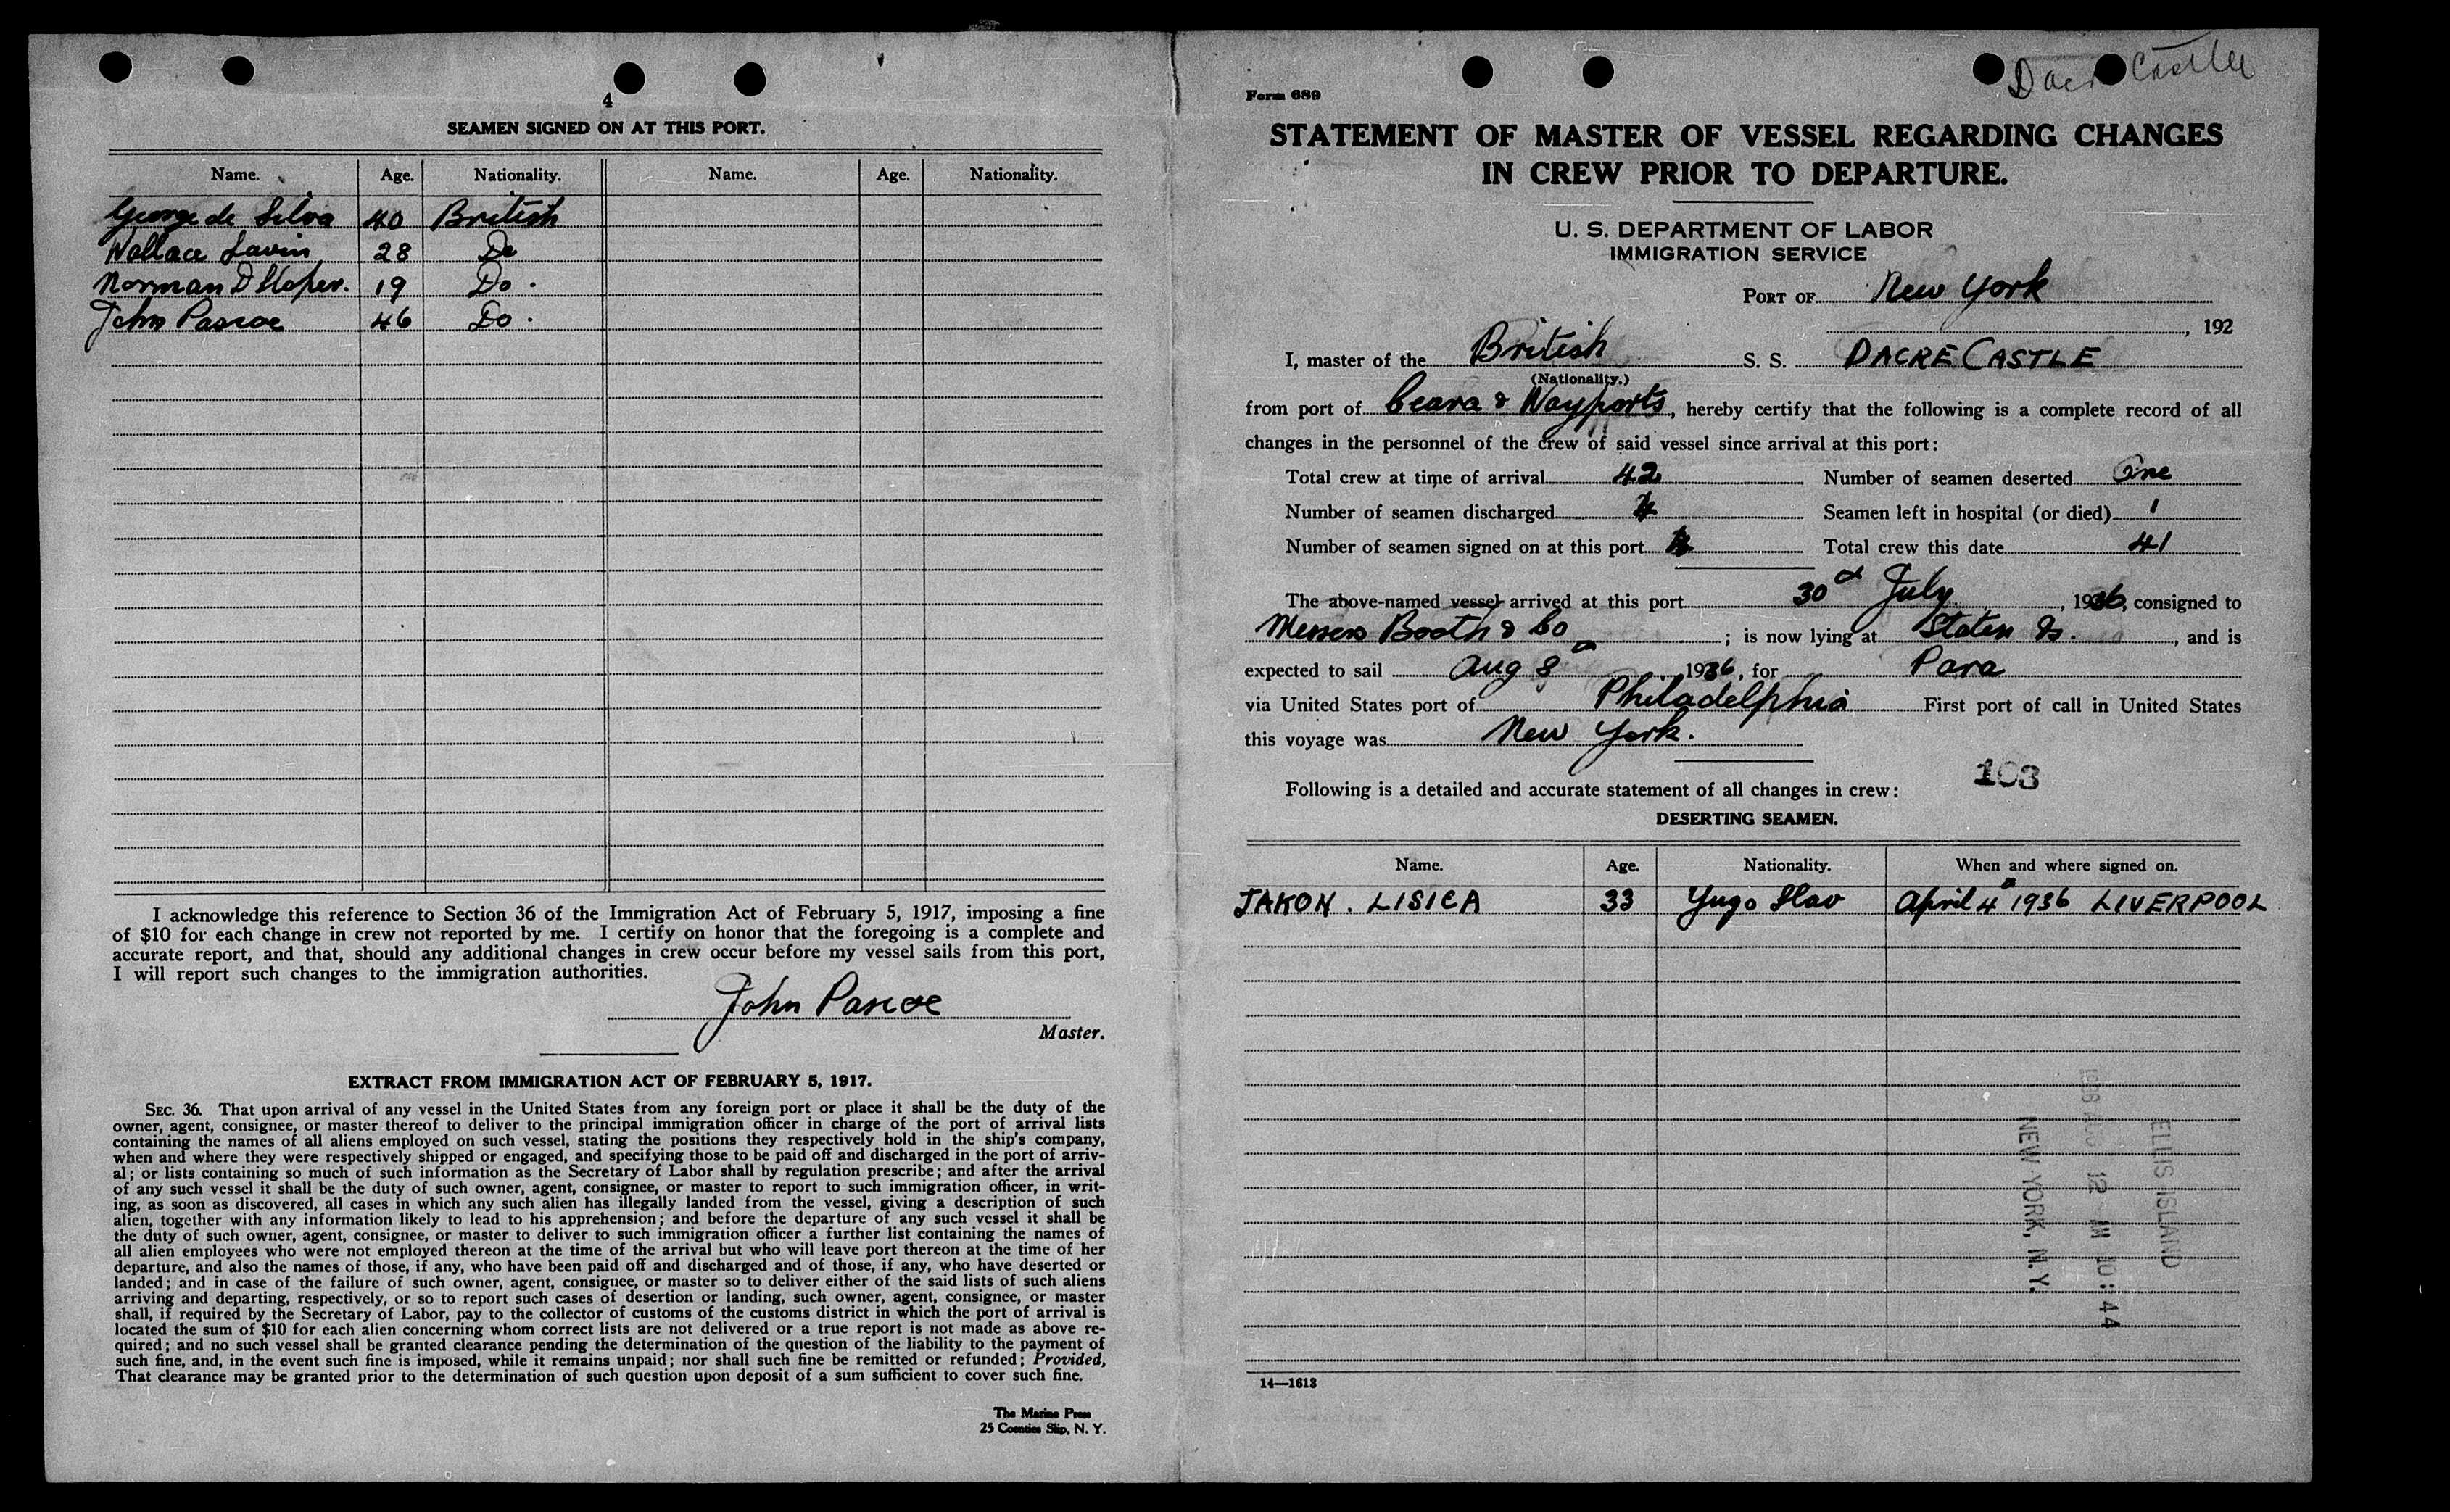 4
SEAMEN SIGNED ON AT THIS PORT.
Name. Age. Nationality. Name. Age. Nationality.
George de Silva 40 British
Wallace 28 Do
Norman D 19 Do.
John Pascoe 46 Do.
I acknowledge this reference to Section 36 of the Immigration Act of February 5, 1917, imposing a fine
of $10 for each change in crew not reported by me. I certify on honor that the foregoing is a complete and
accurate report, and that, should any additional changes in crew occur before my vessel sails from this port,
I will report such changes to the immigration authorities.
John Pascoe
Master.
EXTRACT FROM IMMIGRATION ACT OF FEBRUARY 5, 1917.
SEC. 36. That upon arrival of any vessel in the United States from any foreign port or place it shall be the duty of the
owner, agent, consignee, or master thereof to deliver to the principal immigration officer in charge of the port of arrival lists
containing the names of all aliens employed on such vessel, stating the positions they respectively hold in the ship's company,
when and where they were respectively shipped or engaged, and specifying those to be paid off and discharged in the port of arriv-
al; or lists containing so much of such information as the Secretary of Labor shall by regulation prescribe; and after the arrival
of any such vessel it shall be the duty of such owner, agent, consignee, or master to report to such immigration officer, in writ-
ing, as soon as discovered, all cases in which any such alien has illegally landed from the vessel, giving a description of such
alien, together with any information likely to lead to his apprehension; and before the departure of any such vessel it shall be
the duty of such owner, agent, consignee, or master to deliver to such immigration officer a further list containing the names of
all alien employees who were not employed thereon at the time of the arrival but who will leave port thereon at the time of her
departure, and also the names of those, if any, who have been paid off and discharged and of those, if any, who have deserted or
landed; and in case of the failure of such owner, agent, consignee, or master so to deliver either of the said lists of such aliens
arriving and departing, respectively, or so to report such cases of desertion or landing, such owner, agent, consignee, or master
shall, if required by the Secretary of Labor, pay to the collector of customs of the customs district in which the port of arrival is
located the sum of $10 for each alien concerning whom correct lists are not delivered or a true report is not made as above re-
quired; and no such vessel shall be granted clearance pending the determination of the question of the liability to the payment of
such fine, and, in the event such fine is imposed, while it remains unpaid; nor shall such fine be remitted or refunded; Provided,
That clearance may be granted prior to the determination of such question upon deposit of a sum sufficient to cover such fine.
The Marine Press
25 Coenties Slip, N. Y.
Dacre Castle
Form 689
STATEMENT OF MASTER OF VESSEL REGARDING CHANGES
IN CREW PRIOR TO DEPARTURE.
U. S. DEPARTMENT OF LABOR
IMMIGRATION SERVICE
PORT OF New York
, 192
I, master of the British S. S. DACRE CASTLE
(Nationality.)
from port of Ceara & Wayports, hereby certify that the following is a complete record of all
changes in the personnel of the crew of said vessel since arrival at this port:
Total crew at time of arrival 42 Number of seamen deserted One
Number of seamen discharged 4 Seamen left in hospital (or died) 1
Number of seamen signed on at this port Total crew this date 41
The above-named vessel arrived at this port 30 July, 1936, consigned to
Messers Booth & Co; is now lying at Staten Is., and is
expected to sail Aug 8th 1936, for Para
via United States port of Philadelphia First port of call in United States
this voyage was New York.
103
Following is a detailed and accurate statement of all changes in crew:
DESERTING SEAMEN.
Name. Age. Nationality. When and where signed on.
JAKON. LISICA 33 Yugo Slav April 4th 1936 LIVERPOOL
ELLIS ISLAND
1936 AUG 12 AM 10:44
NEW YORK, N.Y.
14—1613